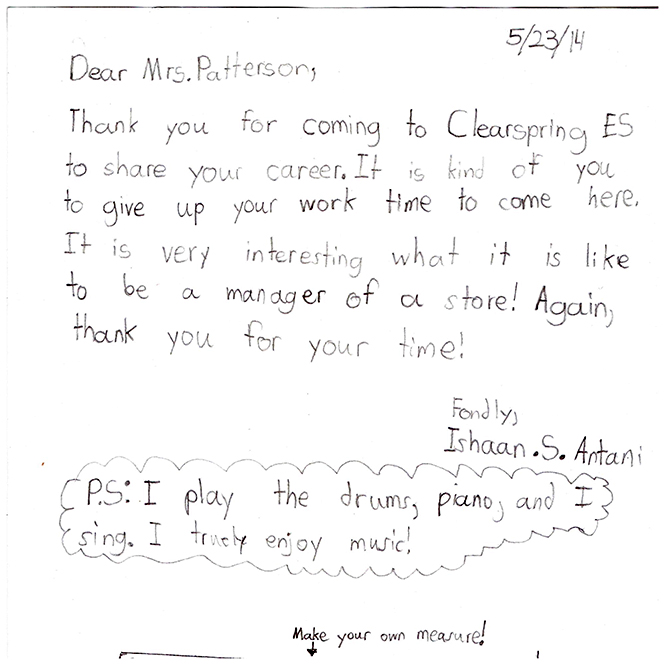 5/23/14
Dear Mrs. Patterson,
Thank you for coming to Clearspring ES
to share your career. It is kind of you
to give up your work time to come here.
It is very interesting what it is like
to be a manager of a store! Again,
thank you for your time!
Fondly,
Ishaan .S. Antani
P.S: I play the drums, piano, and I
sing. I truely enjoy music!
Make your own measure!